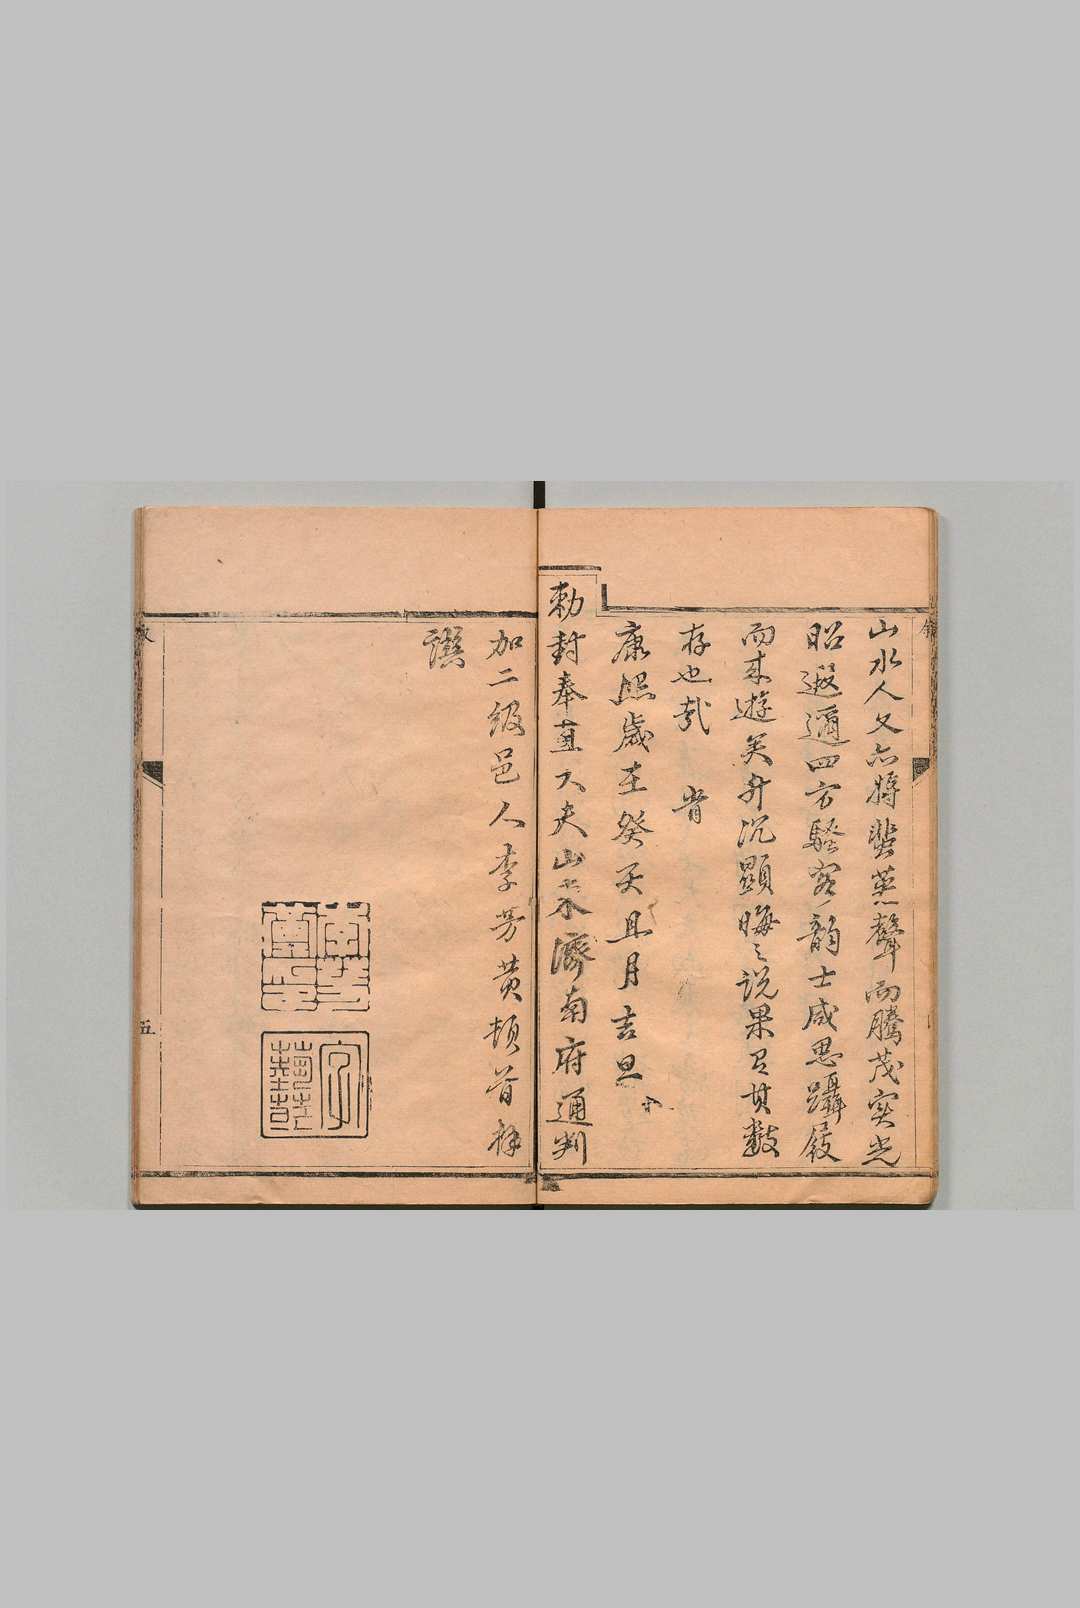 山水人文亦將蜚英聲而騰茂實光
昭遐邇四方騷客韵士咸思躡屐
而來遊矣升沉顯晦之説果有其數
存也哉 旹
康熙歲在癸天且月吉旦
勅封奉直大夫山東濟南府通判
加二級邑人李芳黄頓首拜
譔
李芳
黄印
五